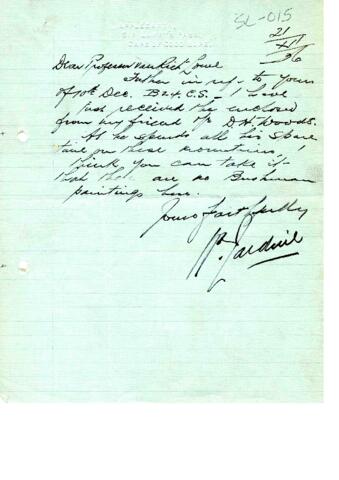 SL-015
APPLEGARTH
SIR LOWRY'S PASS
CAPE OF GOOD HOPE
21/XII/36
Dear Professor van Riet Lowe
Further in ref. to yours
of 10th Dec. B24.C.S. - I have
just received the enclosed
from my friend Mr D.H. Woods.
As he spends all his spare
time on these mountains, I
think you can take it
that there are no Bushman
paintings here.
Yours faithfully
Jardine